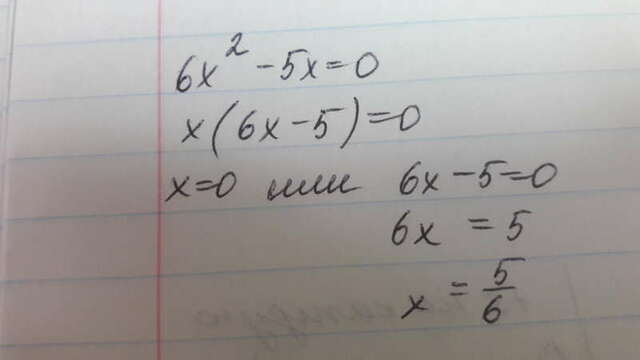 6x² - 5x = 0
x(6x - 5) = 0
x = 0 или 6x - 5 = 0
6x = 5
x = 5/6